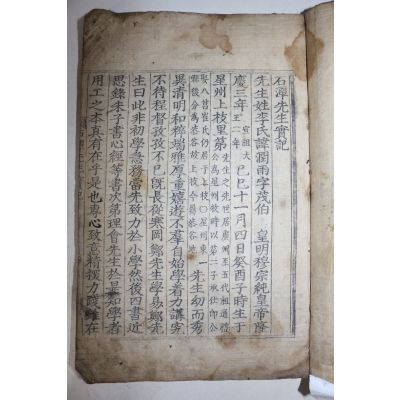 石潭先生實記
先生姓李氏諱潤雨字茂伯 皇明穆宗純皇帝隆
慶三年 宣祖大王二年 己巳十一月四日癸酉子時生于
星州上枝里第 先生之先世居廣州至五代祖通禮公爲星州 以第二子承仕 公
娶八莒崔氏仍居于上枝○星州東 縣後分爲漆谷故上枝今爲漆谷地 先生幼而秀
異清明和粹端雅厚重嬉遊不羣自始學着力講究
不待程督孜孜不已旣長從寒岡鄭先生學易鄭先
生曰此非初學急務當先致力於小學然後四書近
思錄朱子書心經等書次第理會先生於是知學者
用工之本真有在乎是也專心致意精探力踐雖在